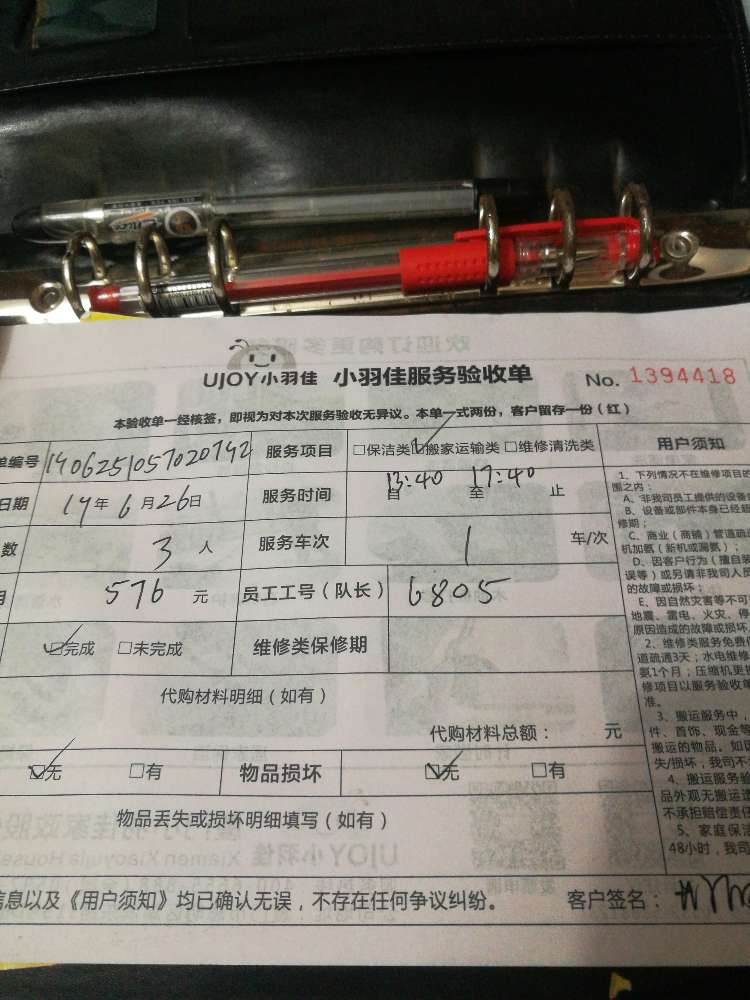 UJOY小羽佳 小羽佳服务验收单 No. 1394418
本验收单一经核签，即视为对本次服务验收无异议。本单一式两份，客户留存一份（红）
单编号 1906251057020742 服务项目 □保洁类 ☑搬家运输类 □维修清洗类 用户须知
日期 19年6月26日 服务时间 13:40 自 17:40 至 止
数 3 人 服务车次 1 车/次
576 元 员工工号（队长） 6805
☑完成 □未完成 维修类保修期
代购材料明细（如有）
代购材料总额： 元
☑无 □有 物品损坏 ☑无 □有
物品丢失或损坏明细填写（如有）
信息以及《用户须知》均已确认无误，不存在任何争议纠纷。 客户签名：
1、下列情况不在维修项目的
围之内：
A、非我司员工提供的设备
B、设备或部件本身已经超
修期；
C、商业（商铺）管道疏
机加氨（新机或漏氨）；
D、因客户行为（擅自装
误等）或另请非我司人员
的故障或损坏；
E、因自然灾害等不可
地震、雷电、火灾、停
原因造成的故障或损坏
2、维修类服务免费
道疏通3天；水电维修
氨1个月；压缩机更换
修项目以服务验收单
准。
3、搬运服务中，
件、首饰、现金等
搬运的物品。如
失/损坏，我司不
4、搬运服务
品外观无搬运
不承担赔偿责任
5、家庭保洁
48小时，我司